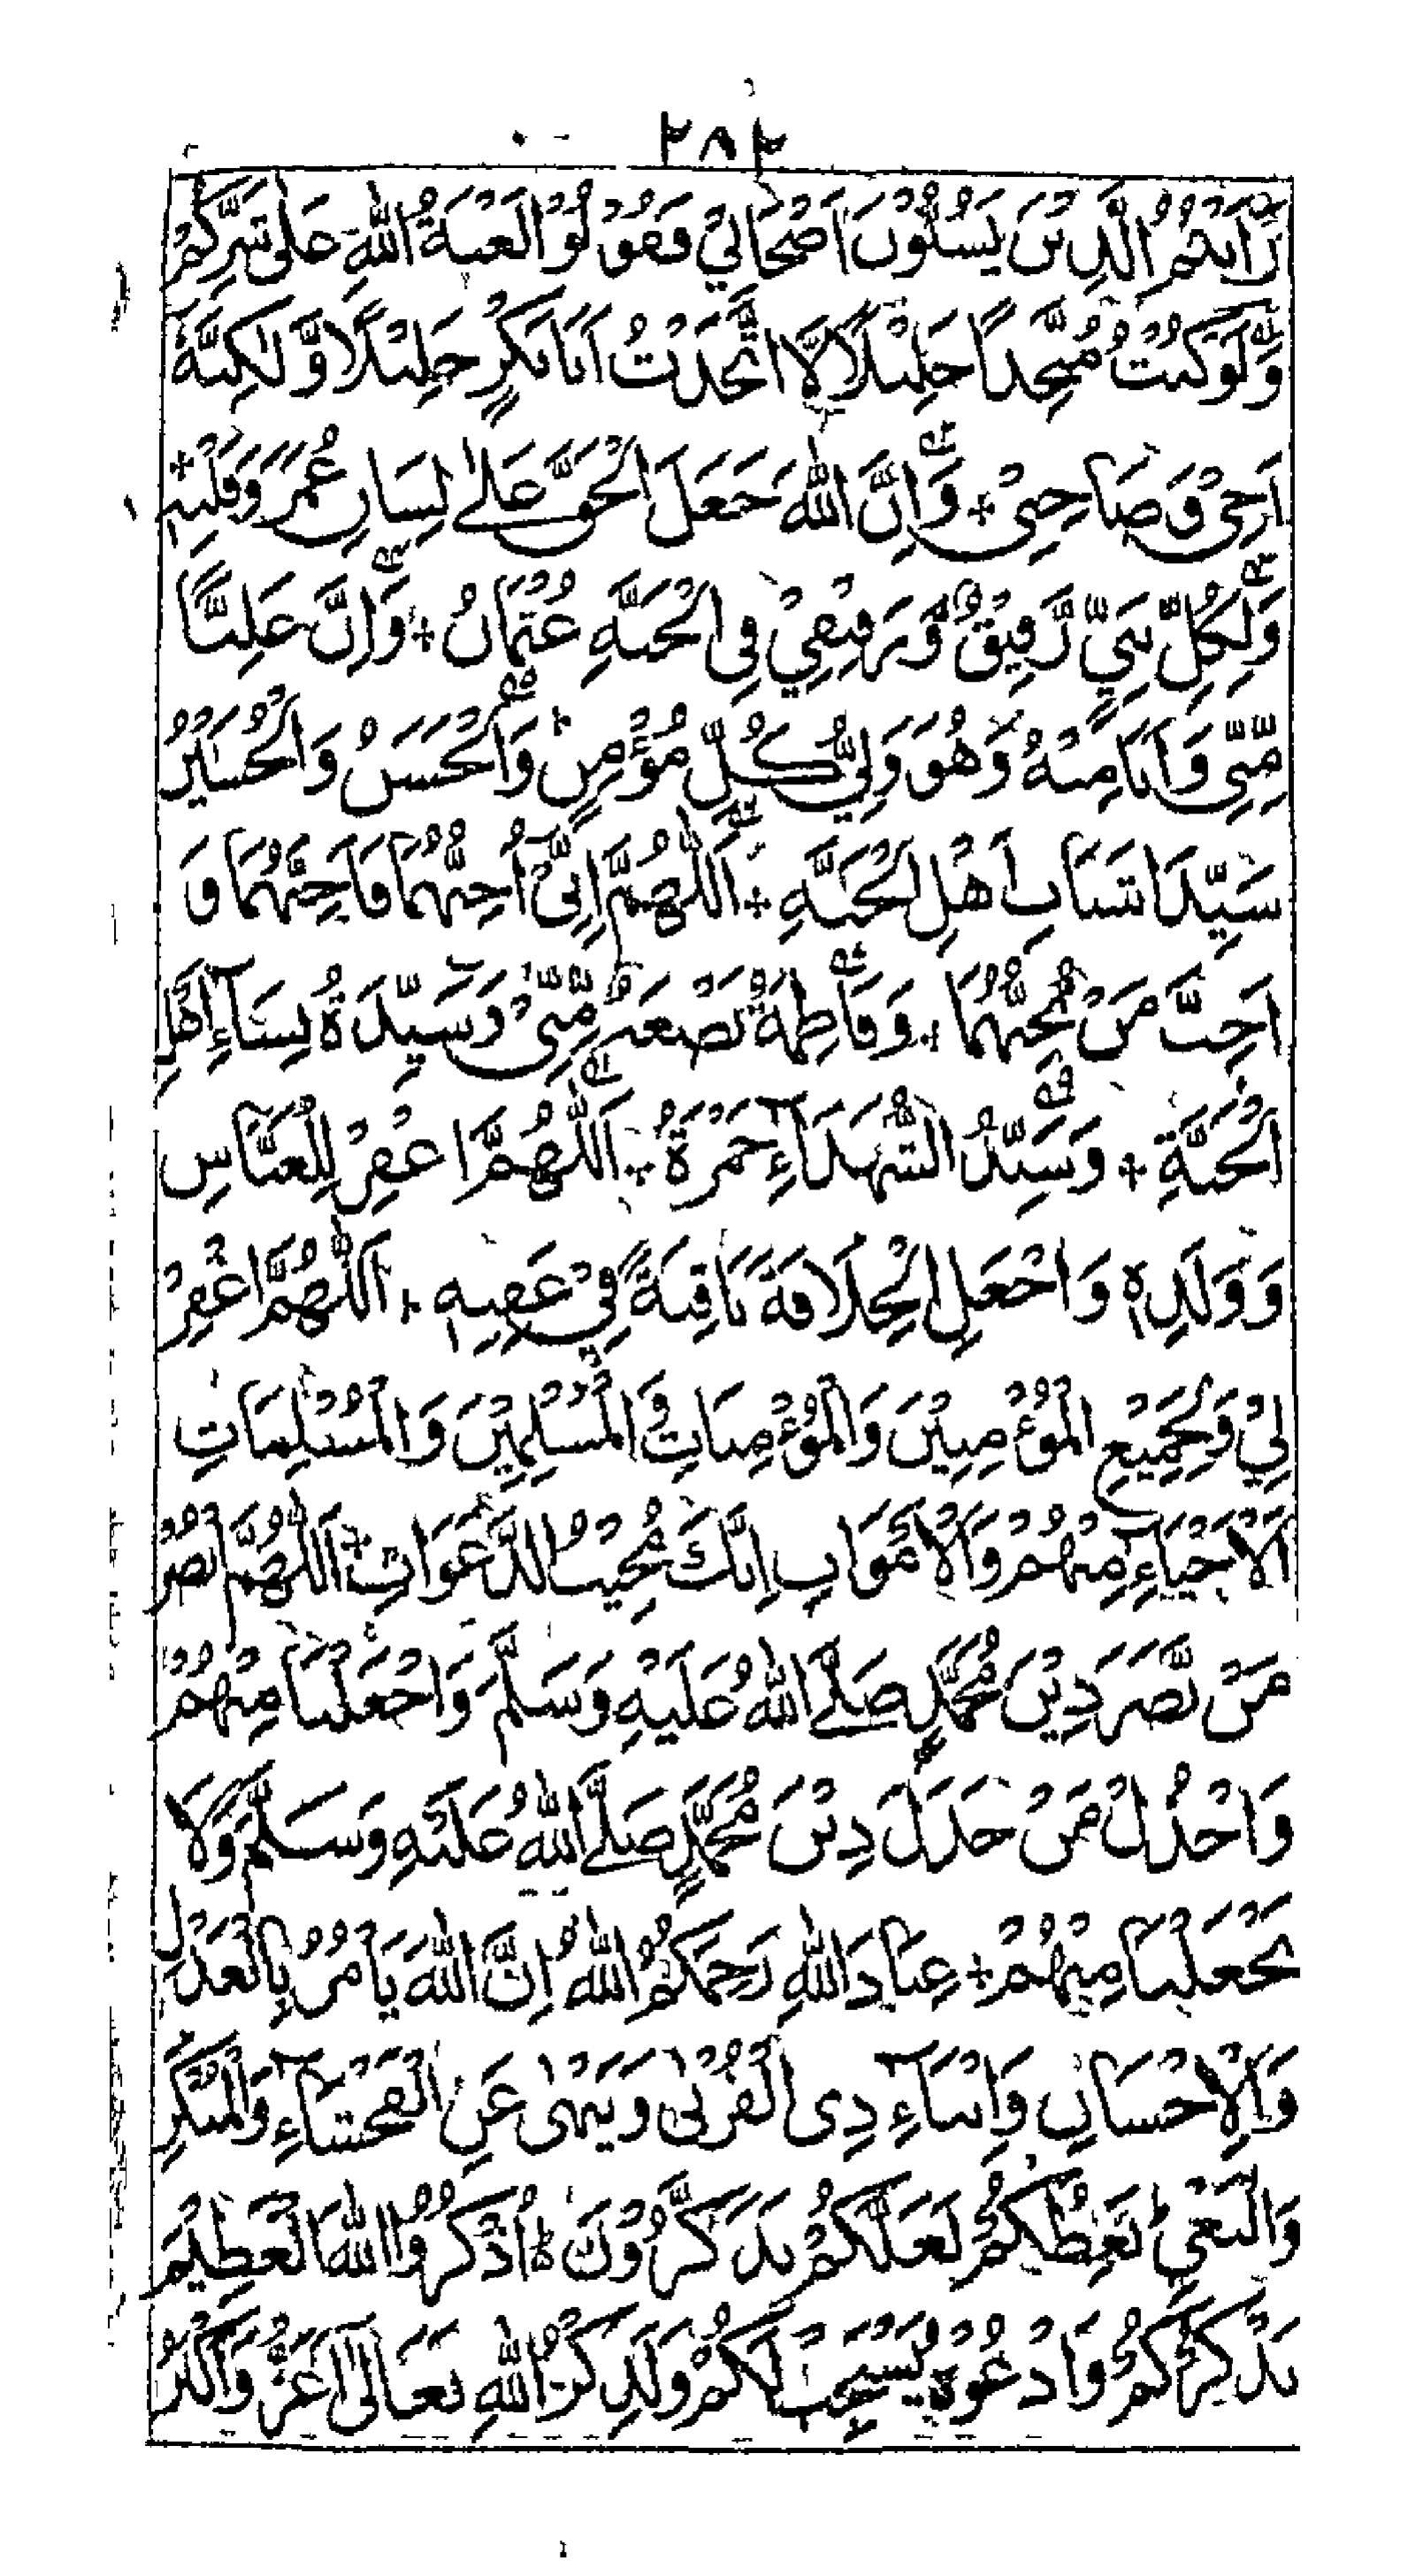 ٢٨٢
رَأَيْتُمُ الَّذِيْنَ يَسُبُّوْنَ اَصْحَابِيْ فَقُوْلُوْا لَعْنَةُ اللهِ عَلٰى شَرِّكُمْ
وَلَوْ كُنْتُ مُتَّخِذًا خَلِيْلًا لَّاتَّخَذْتُ اَبَا بَكْرٍ خَلِيْلًا وَّلٰكِنَّهٗ
اَخِيْ وَصَاحِبِيْ + وَاِنَّ اللهَ جَعَلَ الْحَقَّ عَلٰى لِسَانِ عُمَرَ وَقَلْبِهٖ +
وَلِكُلِّ نَبِيٍّ رَّفِيْقٌ وَّرَفِيْقِيْ فِي الْجَنَّةِ عُثْمَانُ + وَاِنَّ عَلِيًّا
مِّنِّيْ وَاَنَا مِنْهُ وَهُوَ وَلِيُّ كُلِّ مُؤْمِنٍ وَالْحَسَنُ وَالْحُسَيْنُ
سَيِّدَا شَبَابِ اَهْلِ الْجَنَّةِ + اَللّٰهُمَّ اِنِّيْ اُحِبُّهُمَا فَاَحِبَّهُمَا وَ
اَحِبَّ مَنْ يُّحِبُّهُمَا + وَفَاطِمَةُ بَضْعَةٌ مِّنِّيْ وَسَيِّدَةُ نِسَاءِ اَهْلِ
الْجَنَّةِ + وَسَيِّدُ الشُّهَدَاءِ حَمْزَةُ + اَللّٰهُمَّ اغْفِرْ لِلْعَبَّاسِ
وَوَلَدِهٖ وَاجْعَلِ الْخِلَافَةَ بَاقِيَةً فِيْ عَقِبِهٖ + اَللّٰهُمَّ اغْفِرْ
لِيْ وَلِجَمِيْعِ الْمُؤْمِنِيْنَ وَالْمُؤْمِنَاتِ وَالْمُسْلِمِيْنَ وَالْمُسْلِمَاتِ
اَلْاَحْيَاءِ مِنْهُمْ وَالْاَمْوَاتِ اِنَّكَ مُجِيْبُ الدَّعَوَاتِ + اَللّٰهُمَّ انْصُرْ
مَنْ نَّصَرَ دِيْنَ مُحَمَّدٍ صَلَّى اللهُ عَلَيْهِ وَسَلَّمَ وَاجْعَلْنَا مِنْهُمْ
وَاخْذُلْ مَنْ خَذَلَ دِيْنَ مُحَمَّدٍ صَلَّى اللهُ عَلَيْهِ وَسَلَّمَ وَلَا
تَجْعَلْنَا مِنْهُمْ + عِبَادَ اللهِ رَحِمَكُمُ اللهُ اِنَّ اللهَ يَاْمُرُ بِالْعَدْلِ
وَالْاِحْسَانِ وَاِيْتَاءِ ذِي الْقُرْبٰى وَيَنْهٰى عَنِ الْفَحْشَاءِ وَالْمُنْكَرِ
وَالْبَغْيِ يَعِظُكُمْ لَعَلَّكُمْ تَذَكَّرُوْنَ ط اُذْكُرُوا اللهَ الْعَظِيْمَ
يَذْكُرْكُمْ وَادْعُوْهُ يَسْتَجِبْ لَكُمْ وَلَذِكْرُ اللهِ تَعَالٰى اَعَزُّ وَاَكْبَرُ